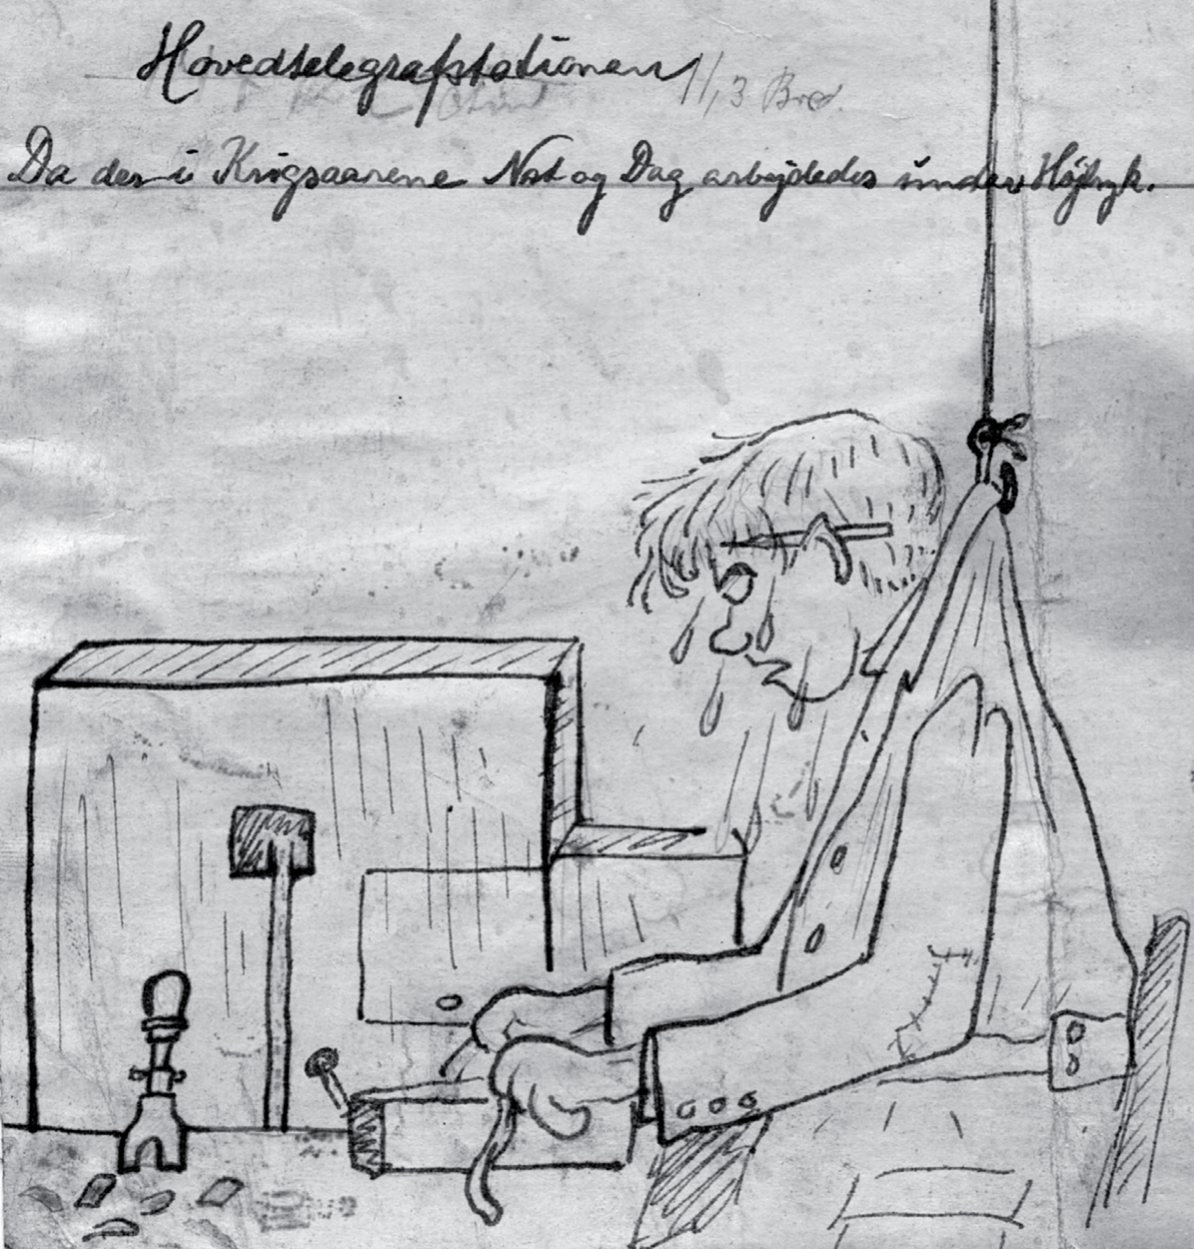 Hovedtelegrafstationen 11/13
Da der i Krigsaarene Nat og Dag arbejdedes under Højtryk.